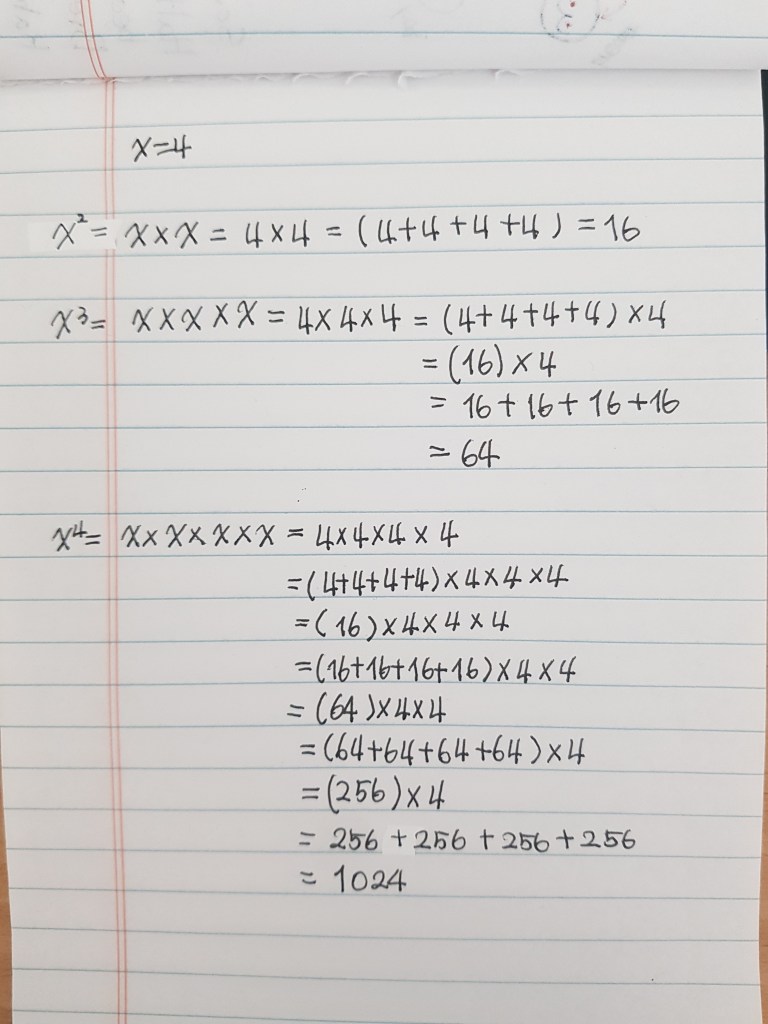 x=4
x² = x×x = 4×4 = (4+4+4+4) = 16
x³ = x×x×x = 4×4×4 = (4+4+4+4)×4
= (16)×4
= 16+16+16+16
= 64
x⁴ = x×x×x×x = 4×4×4×4
= (4+4+4+4)×4×4×4
= (16)×4×4×4
= (16+16+16+16)×4×4
= (64)×4×4
= (64+64+64+64)×4
= (256)×4
= 256+256+256+256
= 1024